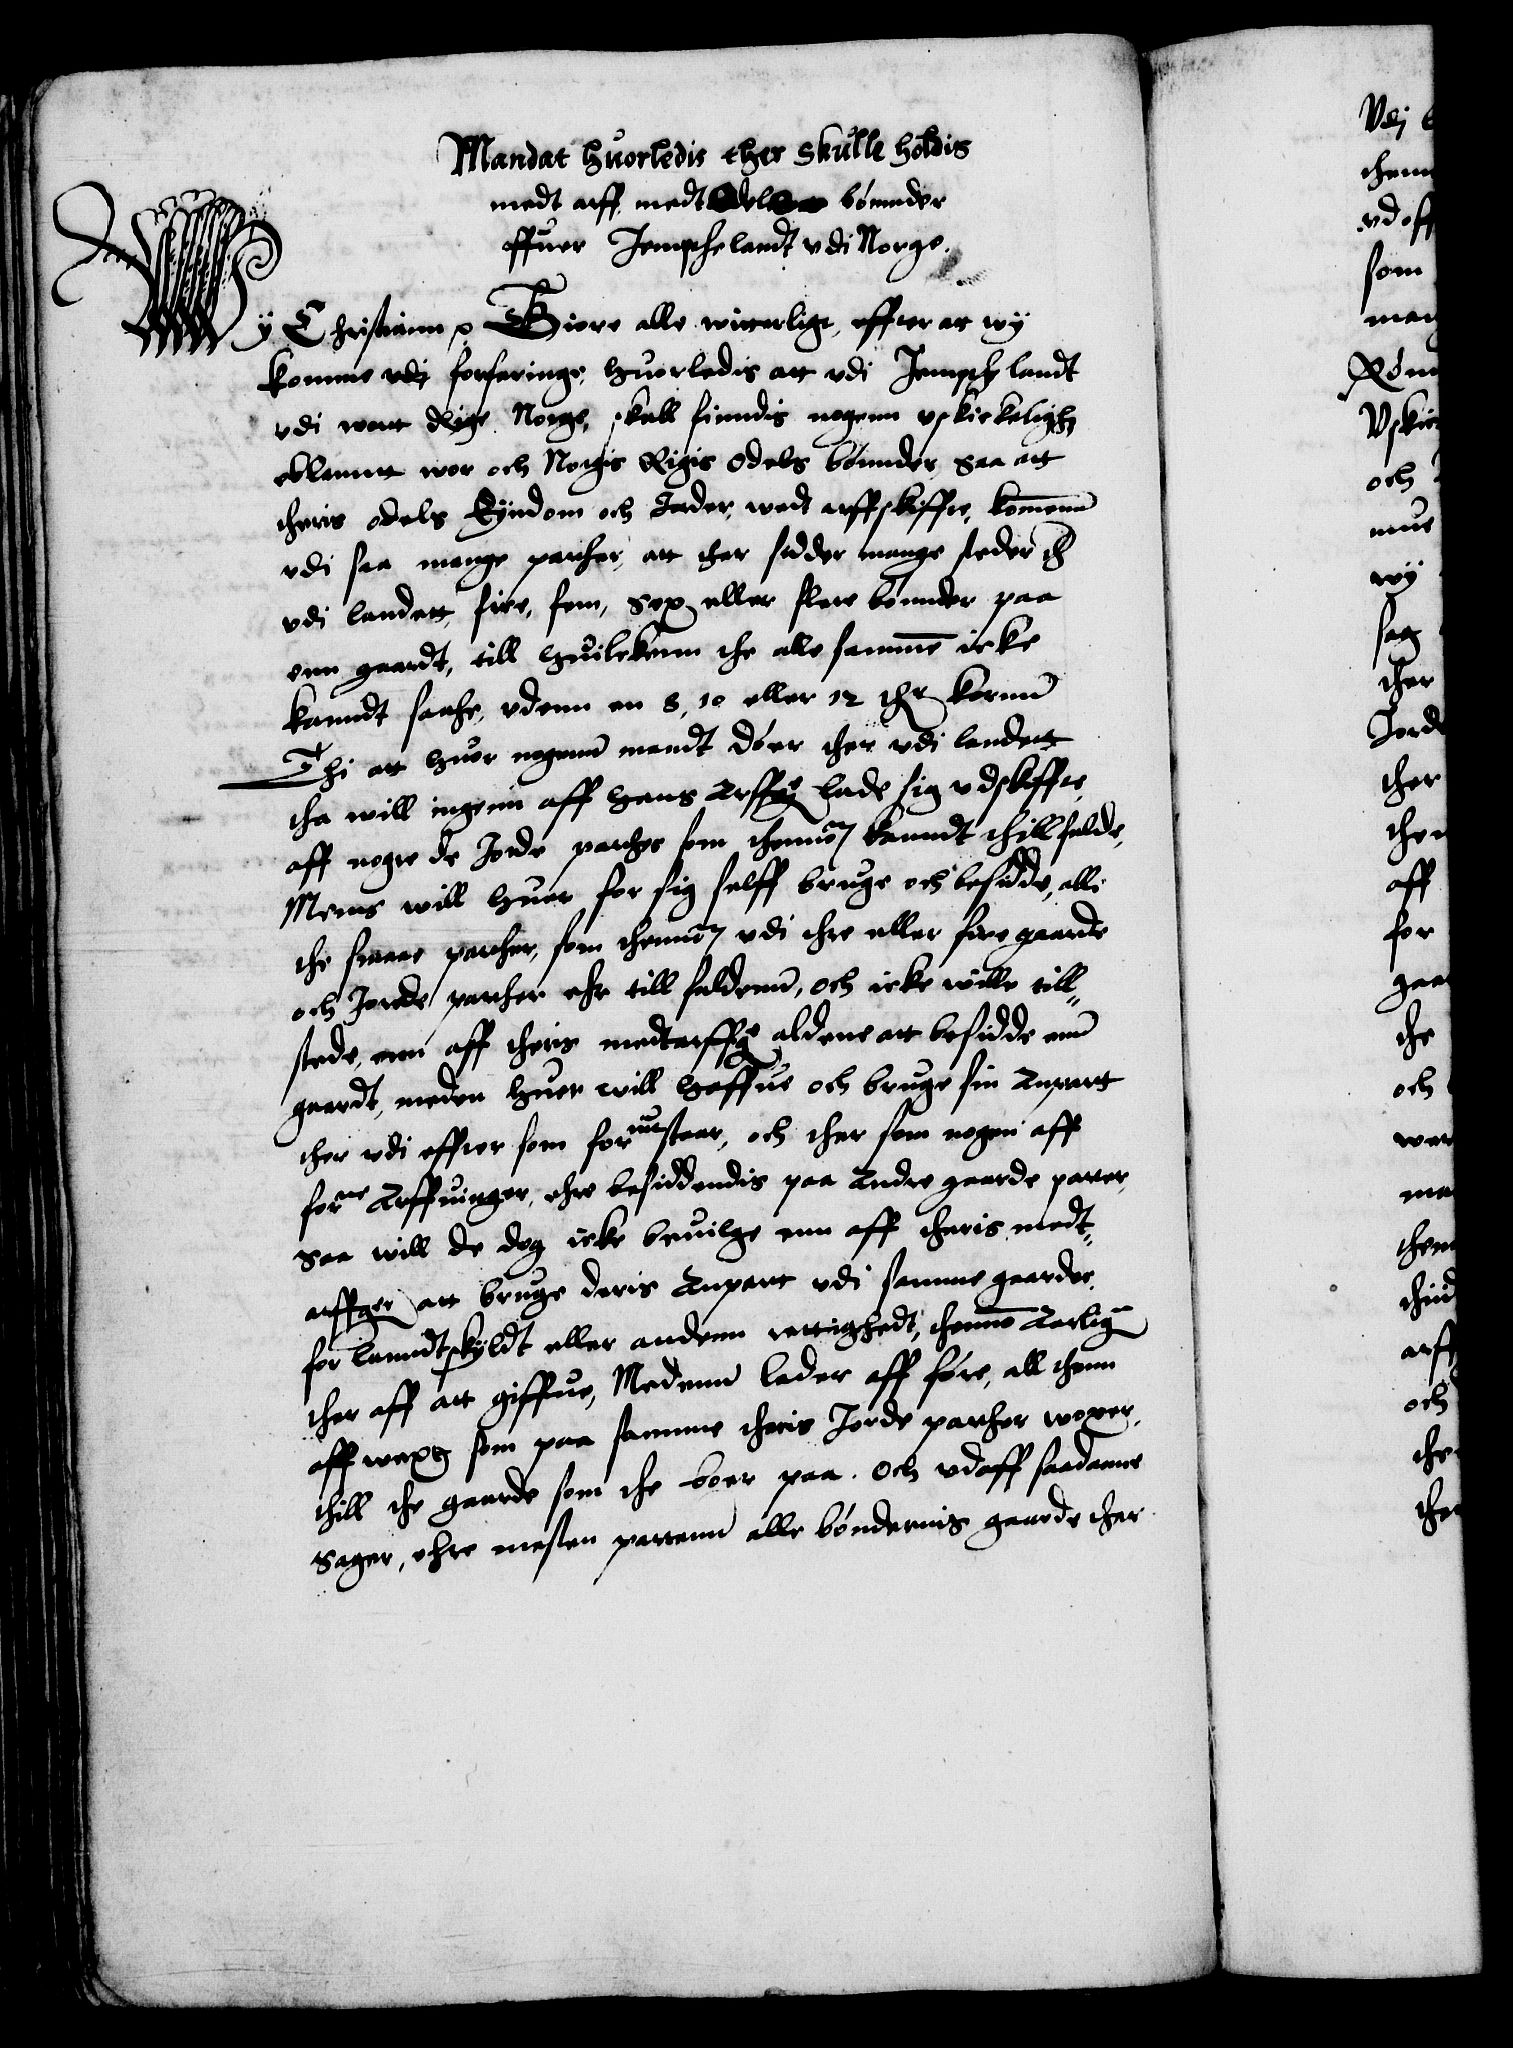 Mandat huorledis ther skulle holdis
medt arff medt Odels bønnder
offuer Jempthelandt vdi Norge.
Wy Christiann ꝛ Giøre alle witterligt, effter at wy
komme vdj forfaringe, huorledis att vdi Jempthlandt
vdi wort Rige Norge, skall finndis nogenn vskickelighz
eblanntt wor och Norgis Rigis Odels bønnder, saa att
theris odels Eyndom och Jorder, wedt arffskiffte, kommenn
vdi saa mange parther, att ther sidder mange steder th
vdi landett, fire, fem, Sex eller flere bønnder paa
enn gaardt, till huilckenn the alle sammen icke
kanndt saathe, vdenn en 8, 10 eller 12 thr kornn
Thi att huor nogenn mandt døer ther vdi landett
tha will ingenn aff hans Arffge lade sig vdskiffte,
aff nogre de Jorde parther som thennom kanndt thillfalde,
Menns will huer for sig selff bruge och besidde, alle
the smaae parther, som thennom vdi thre eller fire gaarde
och Jorde parther ehr till faldenn, och icke wille till⸗
stede, enn aff theris medtarffge aldene att besidde enn
gaardt, meden huer will haffue och bruge sin Anpartt
ther vdi effter som for⁽ⁿᵉ⁾ staar, och ther som nogen aff
for⁽ⁿᵉ⁾ Arffuinger, ehre besiddendis paa Andre gaarde parter,
saa will de dog icke beuilge enn aff theris medt⸗
arffger att bruge deris Anpart vdi samme gaarde,
for lanndtskyldt eller andenn rettighedt, thennom Aarlig
ther aff att giffue, Medenn lader aff føre, all thenn
affwext som paa samme theris Jorde parther woxer,
thill the gaarde som the boer paa. Och vdaff saadanne
Sager, ehre mesten partenn alle bøndernis gaarde ther
Vdj
som
Vskic
och
mue
wy
sag
ther
Jorde
ther
aff
for
gaa
the
och
och